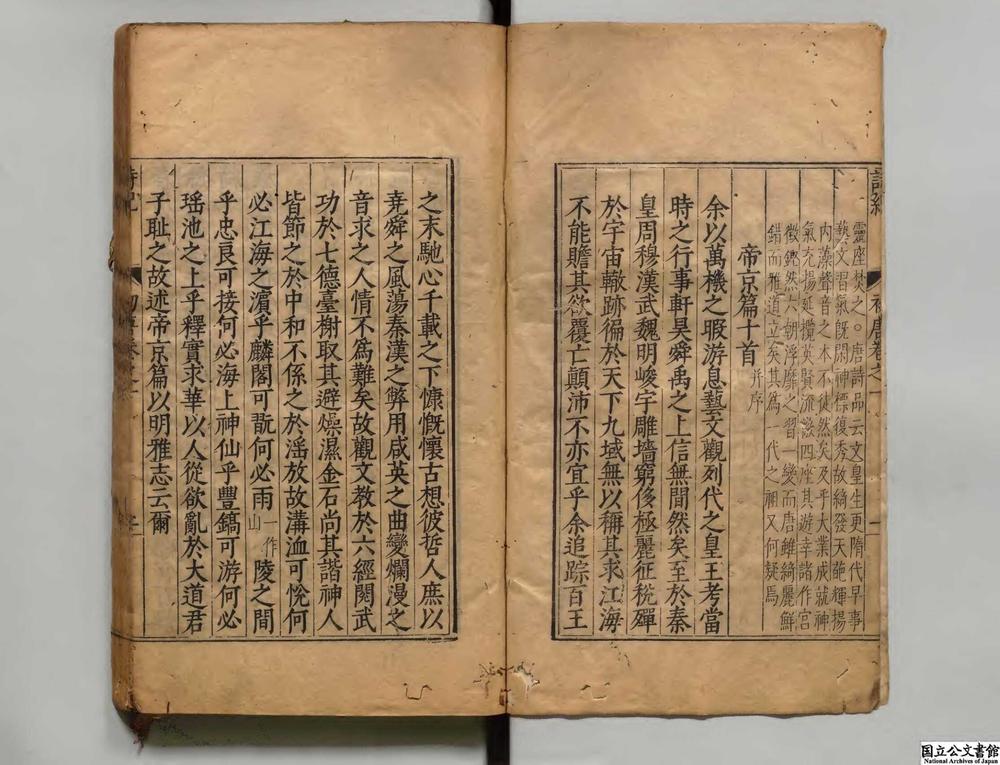 靈座焚之○唐詩品云文皇生更隋代早事
藝文習氣旣閑神標復秀故綺發天葩輝揚
内藻聲音之本不徒然矣及乎大業成就神
氣充揚延攬英賢流激四座其游幸諸作宮
徵鏗然六朝浮靡之習一變而唐雖綺麗鮮
錯而雅道立矣其為一代之祖又何疑焉
帝京篇十首 并序
余以萬機之暇游息藝文觀列代之皇王考當
時之行事軒昊舜禹之上信無間然矣至於秦
皇周穆漢武魏明峻宇雕墻窮侈極麗征稅殫
於宇宙轍跡徧於天下九域無以稱其求江海
不能贍其欲覆亡顛沛不亦宜乎余追踪百王
之末馳心千載之下慷慨懷古想彼哲人庶以
堯舜之風蕩秦漢之弊用咸英之曲變爛漫之
音求之人情不為難矣故觀文教於六經閱武
功於七德臺榭取其避燥濕金石尚其諧神人
皆節之於中和不係之於滛放故溝洫可悅何
必江海之濵乎麟閣可翫何必兩一作山陵之間
乎忠良可接何必海上神仙乎豐鎬可游何必
瑶池之上乎釋實求華以人從欲亂於大道君
子耻之故述帝京篇以明雅志云爾
国立公文書館
National Archives of Japan